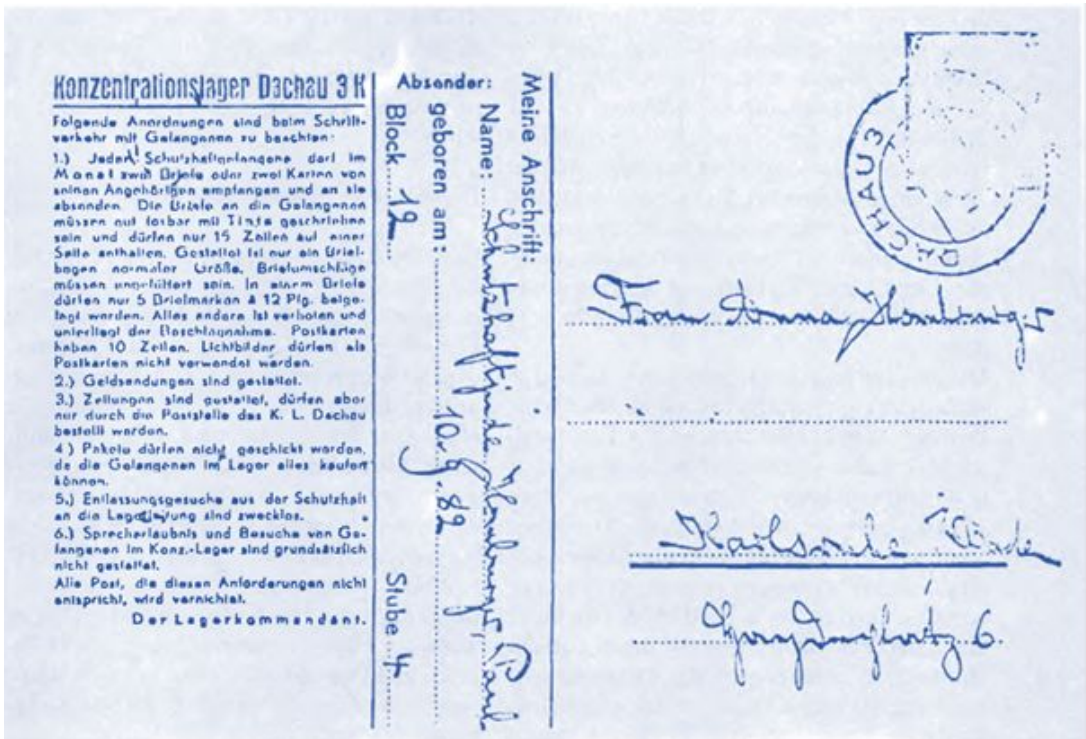 Konzentrationslager Dachau 3 K
Folgende Anordnungen sind beim Schrift-
verkehr mit Gefangenen zu beachten:
1.) Jeder Schutzhaftgefangene darf im
Monat zwei Briefe oder zwei Karten von
seinen Angehörigen empfangen und an sie
absenden. Die Briefe an die Gefangenen
müssen gut lesbar mit Tinte geschrieben
sein und dürfen nur 15 Zeilen auf einer
Seite enthalten. Gestattet ist nur ein Brief-
bogen normaler Größe. Briefumschläge
müssen ungefüttert sein. In einem Briefe
dürfen nur 5 Briefmarken à 12 Pfg. beige-
legt werden. Alles andere ist verboten und
unterliegt der Beschlagnahme. Postkarten
haben 10 Zeilen. Lichtbilder dürfen als
Postkarten nicht verwendet werden.
2.) Geldsendungen sind gestattet.
3.) Zeitungen sind gestattet, dürfen aber
nur durch die Poststelle des K. L. Dachau
bestellt werden.
4) Pakete dürfen nicht geschickt werden,
da die Gefangenen im Lager alles kaufen
können.
5.) Entlassungsgesuche aus der Schutzhaft
an die Lagerleitung sind zwecklos.
6.) Sprecherlaubnis und Besuche von Ge-
fangenen im Konz.-Lager sind grundsätzlich
nicht gestattet.
Alle Post, die diesen Anforderungen nicht
entspricht, wird vernichtet.
Der Lagerkommandant.
Absender:
Meine Anschrift:
Name: Schutzhaftjude Homburger, Paul
geboren am: 10. 9. 82
Block 12 Stube 4
DACHAU 3
Frau Anna Homburger
Karlsruhe Baden
6